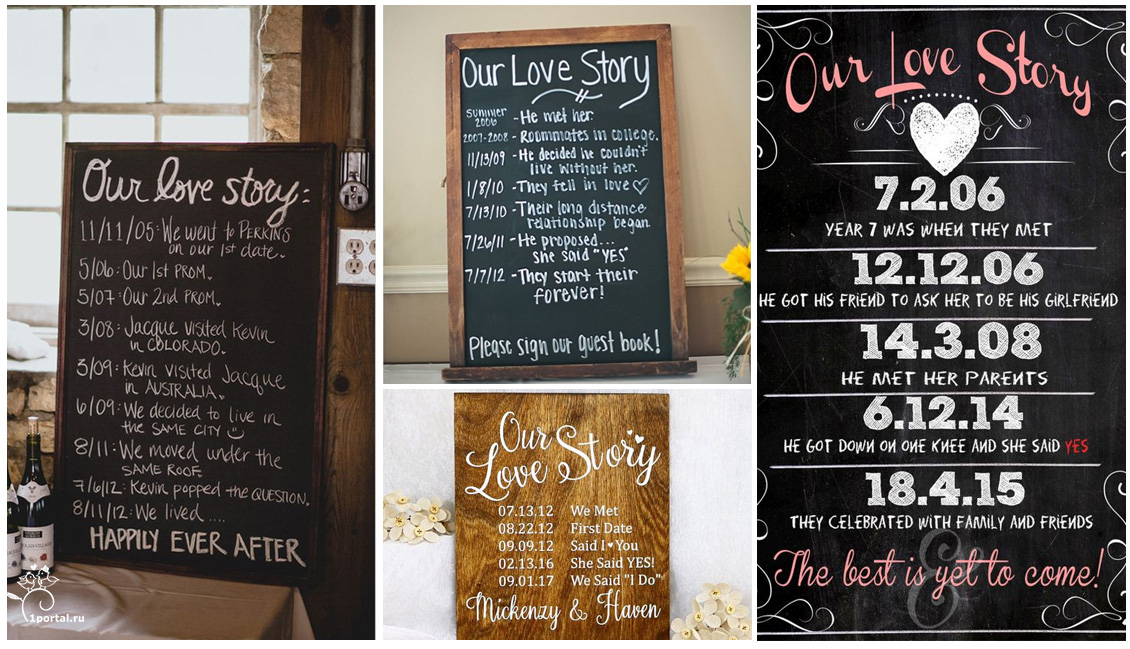 Our love story:
11/11/05: We went to PERKINS
on our 1st date.
5/06: Our 1st PROM.
5/07: Our 2nd PROM.
3/08: Jacque visited Kevin
in COLORADO.
3/09: Kevin visited Jacque
in AUSTRALIA.
6/09: We decided to live in
the SAME CITY
8/11: We moved under the
SAME ROOF.
7/6/12: Kevin popped the QUESTION.
8/11/12: We lived ....
HAPPILY EVER AFTER
1portal.ru
Our Love Story
summer
2006 - He met her
2007-2008 - Roommates in college.
11/13/09 - He decided he couldn't
live without her.
1/8/10 - They fell in love ♡
7/13/10 - Their long distance
relationship began.
7/26/11 - He proposed...
she said "YES"
7/7/12 - They start their
forever!
Please sign our guest book!
Our
Love Story
07.13.12 We Met
08.22.12 First Date
09.09.12 Said I ♥ You
02.13.16 She Said YES!
09.01.17 We Said "I Do"
Mickenzy & Haven
Our Love Story
7.2.06
YEAR 7 WAS WHEN THEY MET
12.12.06
HE GOT HIS FRIEND TO ASK HER TO BE HIS GIRLFRIEND
14.3.08
HE MET HER PARENTS
6.12.14
HE GOT DOWN ON ONE KNEE AND SHE SAID YES
18.4.15
THEY CELEBRATED WITH FAMILY AND FRIENDS
&
The best is yet to come!